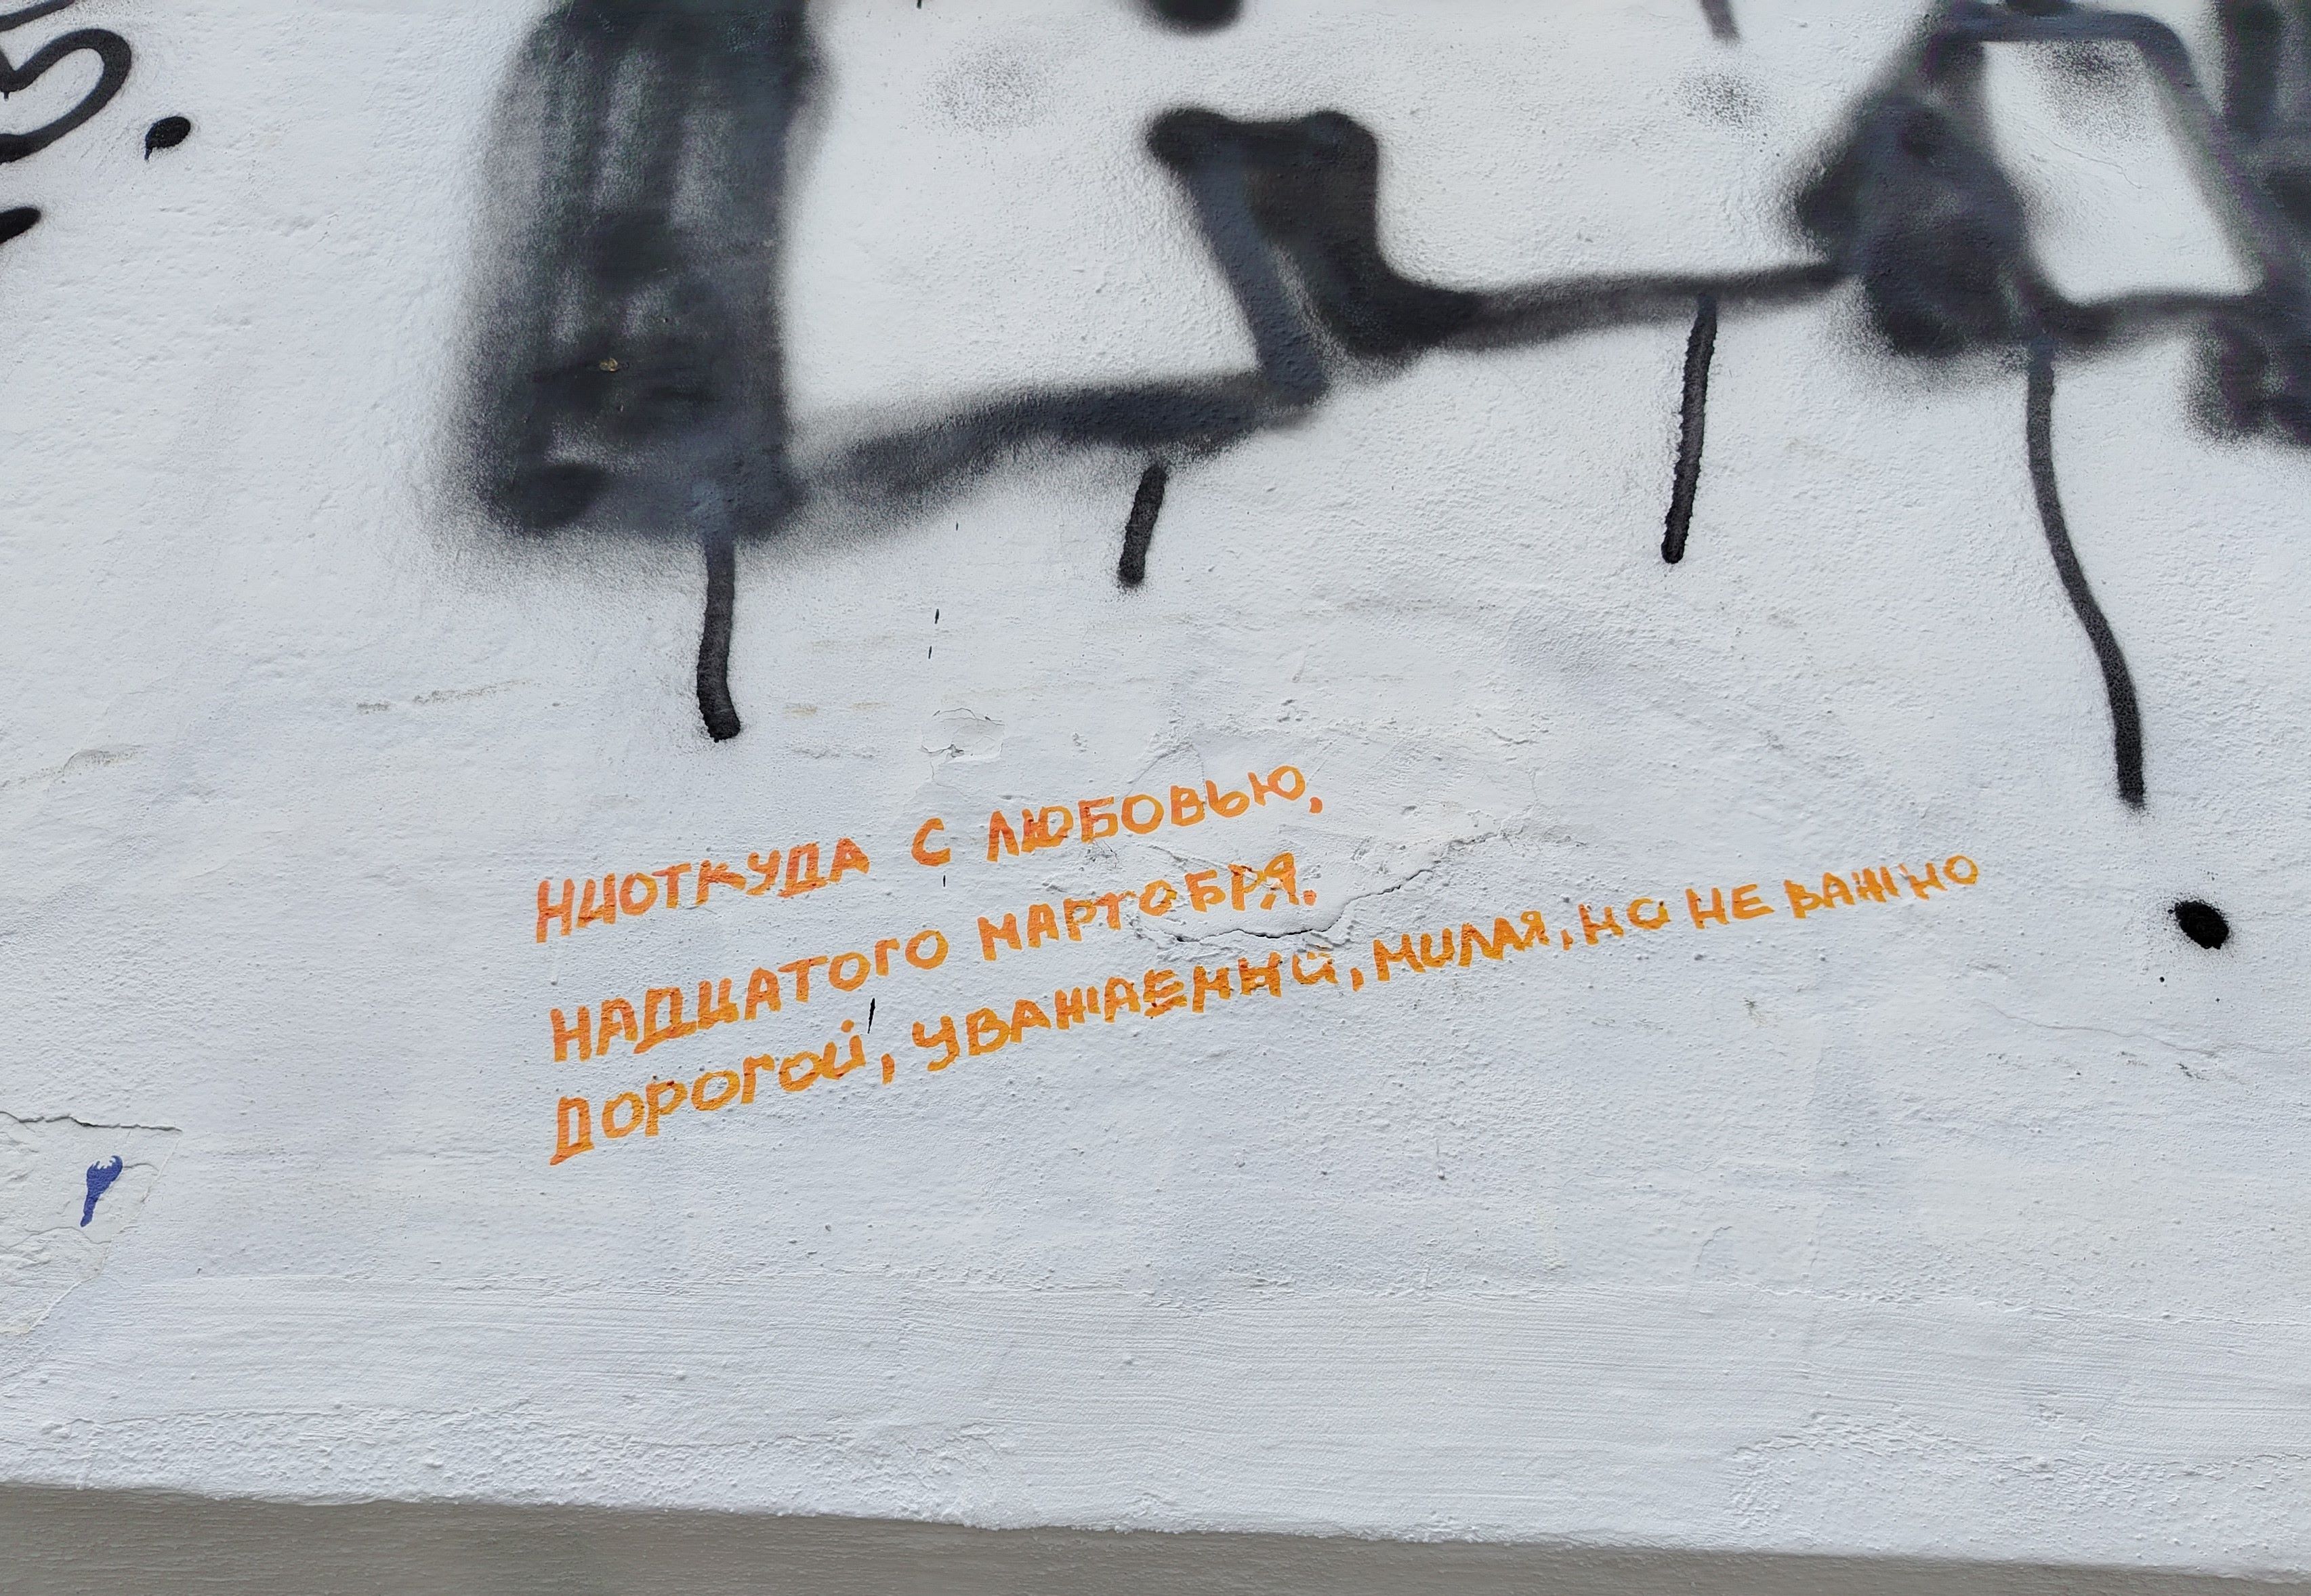 НИОТКУДА С ЛЮБОВЬЮ,
НАДЦАТОГО МАРТОБРЯ.
ДОРОГОЙ, УВАЖАЕМЫЙ, МИЛАЯ, НО НЕ ВАЖНО